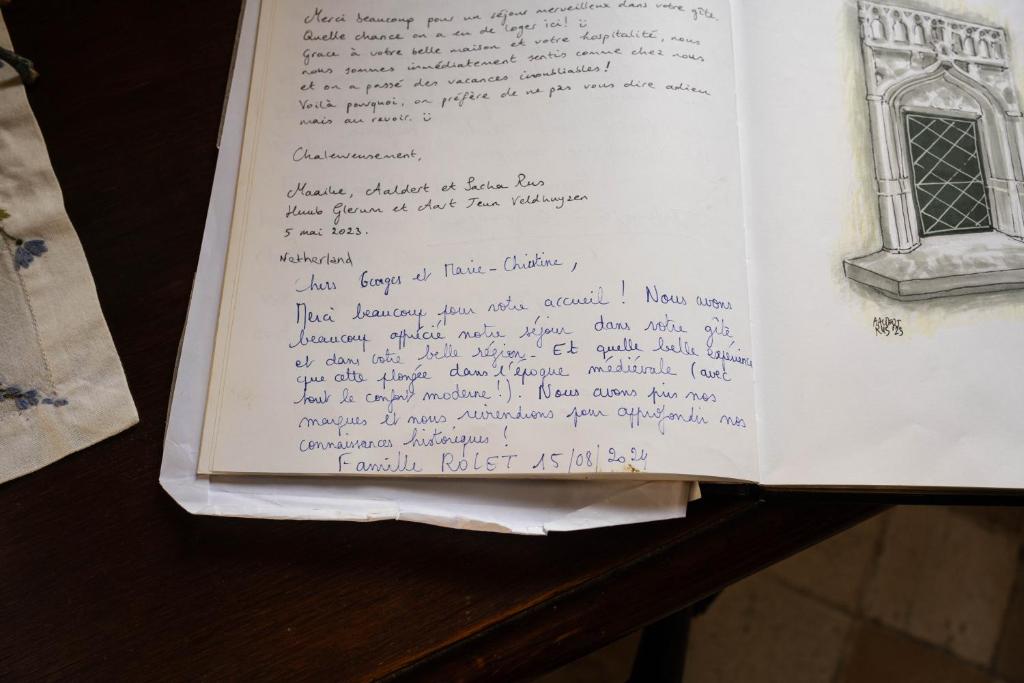 Merci beaucoup pour un séjour merveilleux dans votre gîte.
Quelle chance on a eu de loger ici! ü
Grace à votre belle maison et votre hospitalité, nous
nous sommes immédiatement sentis comme chez nous
et on a passé des vacances inoubliables!
Voilà pourquoi, on préfère de ne pas vous dire adieu
mais au revoir. ü
Chaleureusement,
Maaike, Aaldert et Sacha Rus
Huub Glerum et Aart Jeun Veldhuyzen
5 mai 2023.
Netherland
Chers Georges et Marie-Christine,
Merci beaucoup pour votre accueil ! Nous avons
beaucoup apprécié notre séjour dans votre gîte
et dans votre belle région. Et quelle belle expérience
que cette plongée dans l'époque médiévale (avec
tout le confort moderne !). Nous avons pris nos
marques et nous reviendrons pour approfondir nos
connaissances historiques !
Famille ROLET 15/08/2024
AALDERT
RUS '23